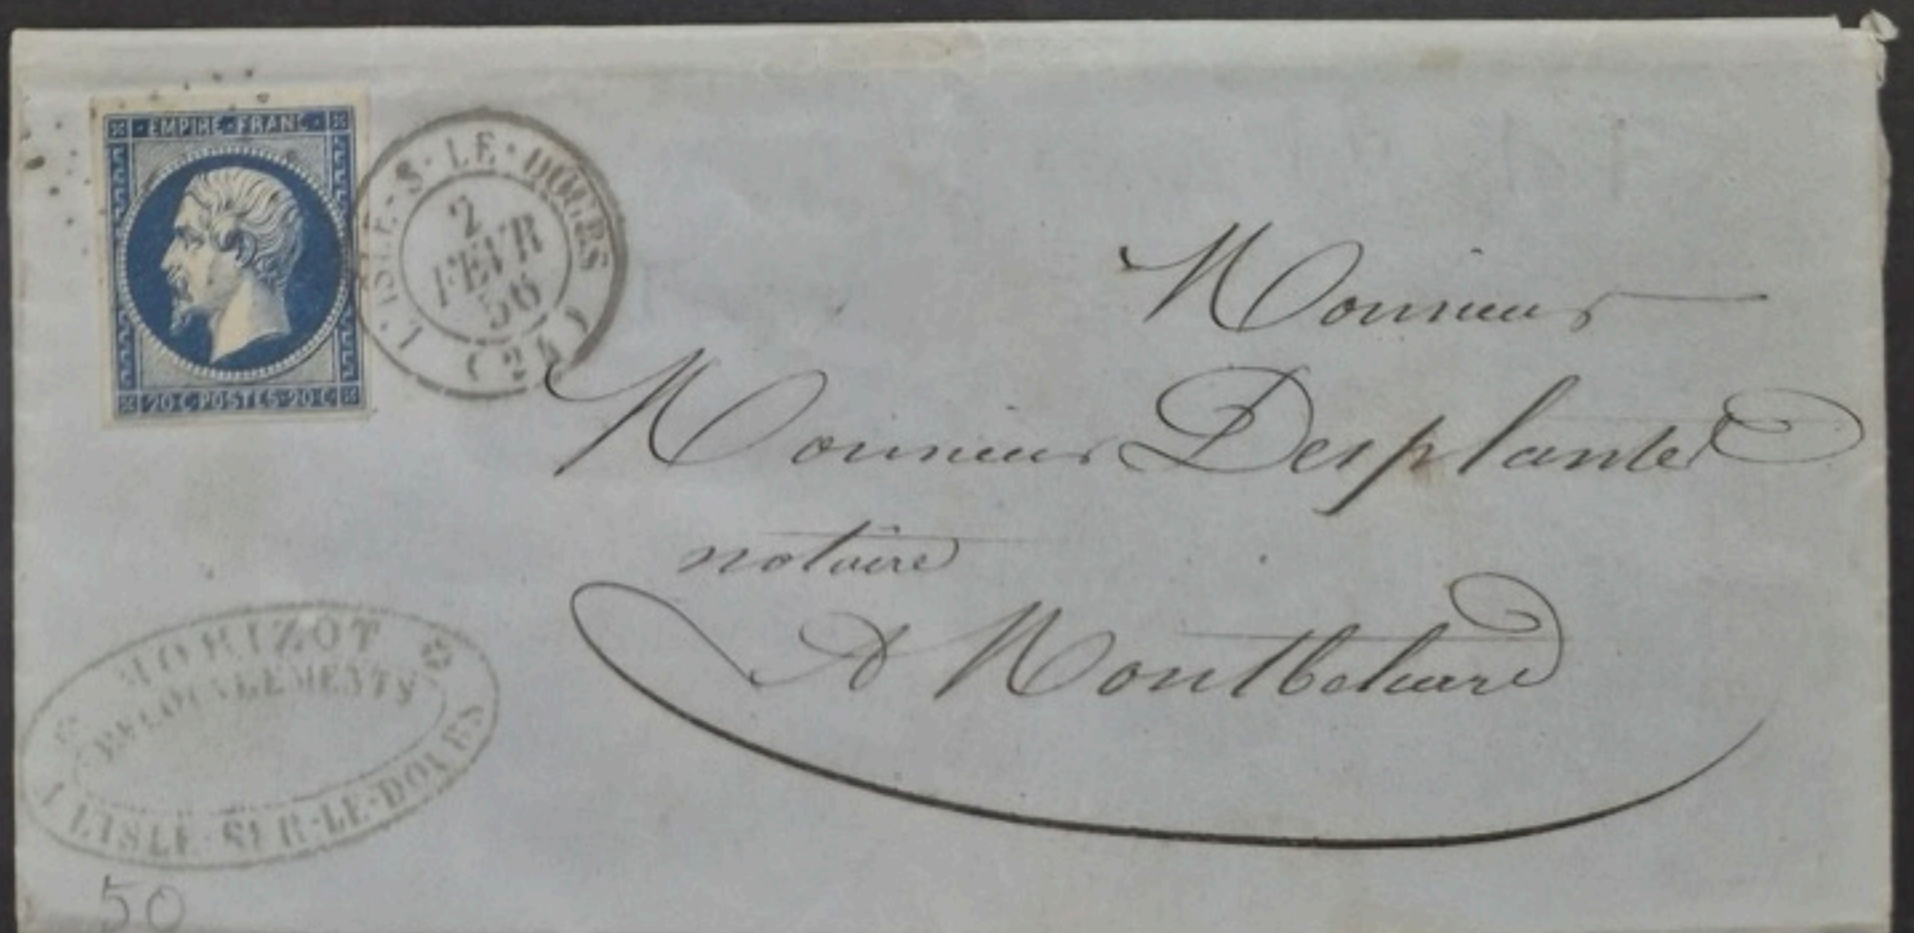 EMPIRE·FRANC·
20 C·POSTES·20 C
L'ISLE-S-LE-DOUBS
2
FEVR
56
(24)
Monsieur
Monsieur Desplantes
notaire
A Montbeliard
MORIZOT
L'ISLE-SUR-LE-DOUBS
50